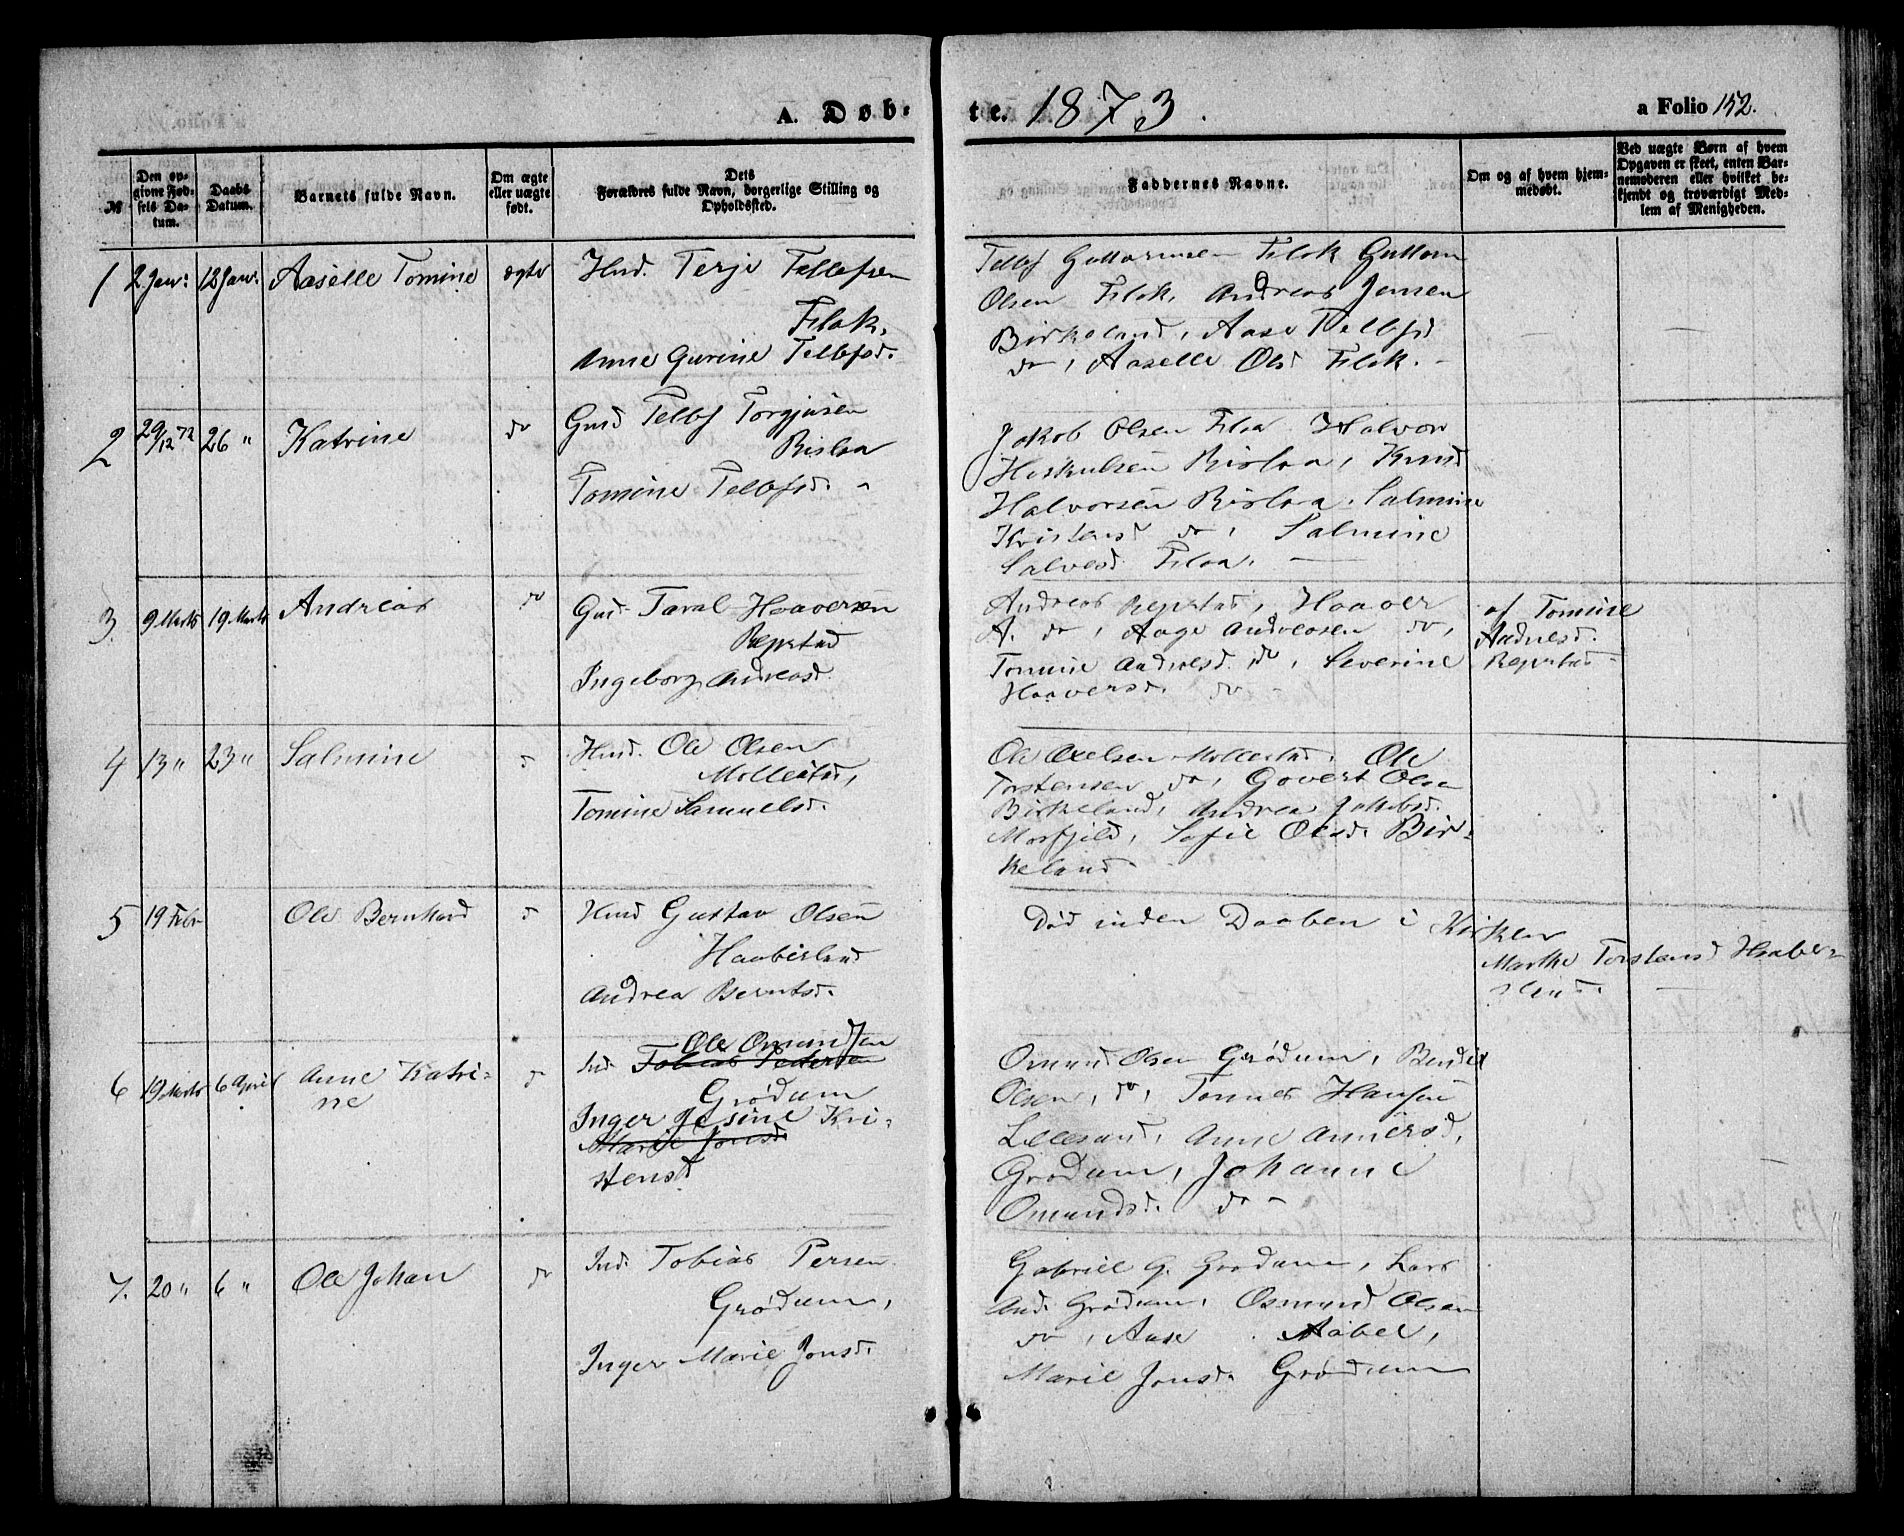 A. Døb-
te. 1873.
a Folio 152.
№
Den op-
givne Fød-
sels Da-
tum.
Daabs
Datum.
Barnets fulde Navn.
Om ægte
eller uægte
født.
Dets
Forældres fulde Navn, borgerlige Stilling og
Opholdssted.
Faddernes Navne.
Om og af hvem hjem-
medøbt.
Ved uægte Børn af hvem
Opgaven er skeet, enten Bar-
nemoderen eller hvilket be-
kjendt og troværdigt Med-
lem af Menigheden.
1 2 Jan: 12 Jan: Aaselle Tomine ægte
Hmd. Terje Tellefsen
Flak,
Anne Gurine Tellefsd.
Tellef Guttormsen Flak Guttorm
Olsen Flak, Andreas Jensen
Birkeland, Aase Tellefsd
do, Aaselle Olsd Flak. -
2 29/12 72 26 " Katrine do
Gmd Tellef Torgjusen
Rislaa
Tomine Tellefsd. -
Jakob Olsen Flaa Halvor
Heskulsen Rislaa, Knud
Halvorsen Rislaa, Salmine
Kristensd do, Salmine
Salvesd Flaa. —
3. 9 Marts 19 Marts Andreas do
Gmd. Taral Haaversen
Repstad
Ingeborg Andreasd.
Andreas Repstad, Haaver
A. do, Aage Andreasen do,
Tomine Andreasd. do, Severine
Haaversd. do -
af Tomine
Andreasd.
Repstad -
4 13 " 23 " Salmine d
Hmd. Ole Olsen
Mollestad,
Tomine Samuelsd.
Ole Axelsen Mollestad. Ole
Torstensen do, Govert Olsen
Birkeland, Andrea Jakobsd.
Morfjeld, Sofie Olsd. Bir-
keland
5 19 Febr Ole Bernhard d
Hmd Gustav Olsen
Haabesland
Andrea Berntsd.
Død inden Daaben i Kirken
Marthe Torstensd Haabes-
land. —
6 19 Marts 6 April Anne Katri-
ne d
Ole Omundsen
Ind. Tobias Pedersen
Grødum
Inger Jesine Kri-
Marie Jonsd.
stensd
Omund Olsen Grødum, Bendix
Olsen, do, Tønnes Hansen
Lillesand, Anne Annersd,
Grødum, Johanne
Omundsd. do -
7. 20 " 6 " Ole Johan do
Ind. Tobias Persen
Grødum,
Inger Marie Jonsd.
Gabriel G. Grødum, Lars
And. Grødum, Osmund Olsen
do, Aase Aabel,
Marie Jonsd. Grødum